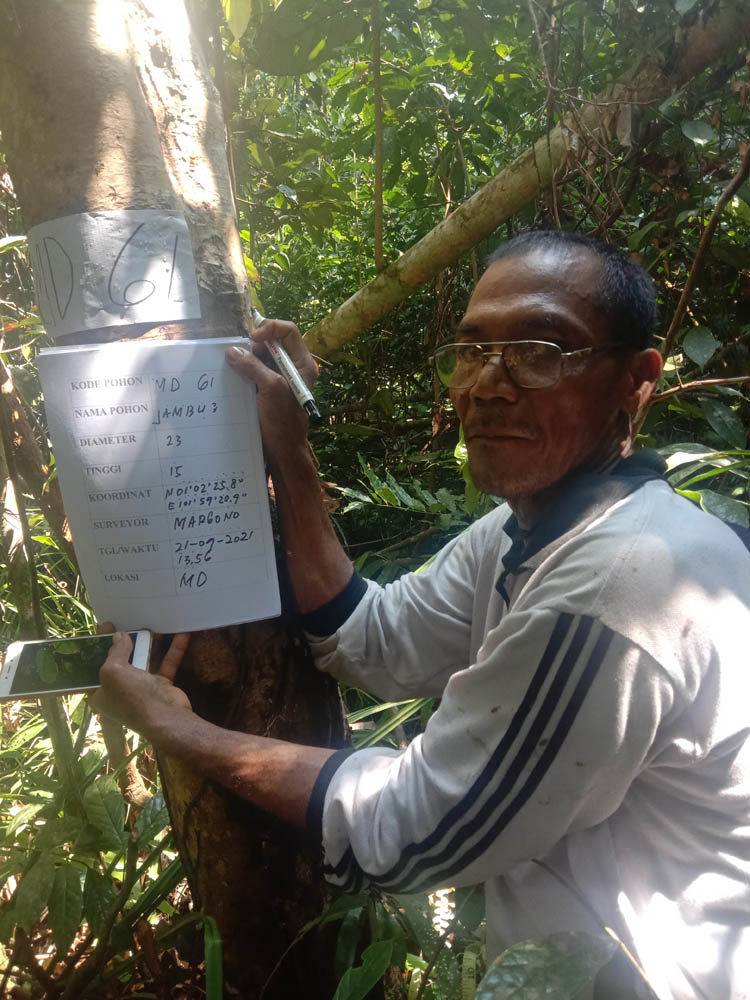 MD 61
KODE POHON MD 61
NAMA POHON JAMBU 3
DIAMETER 23
TINGGI 15
KOORDINAT N 01°02'25.8"
E 101°59'20.9"
SURVEYOR MARGONO
TGL/WAKTU 21-09-2021
13.56
LOKASI MD